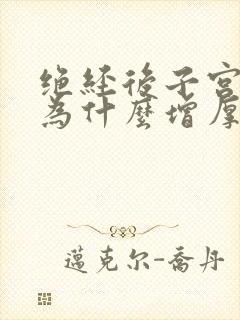 绝经后子宫
为什麽增厚
邁克尔-喬丹